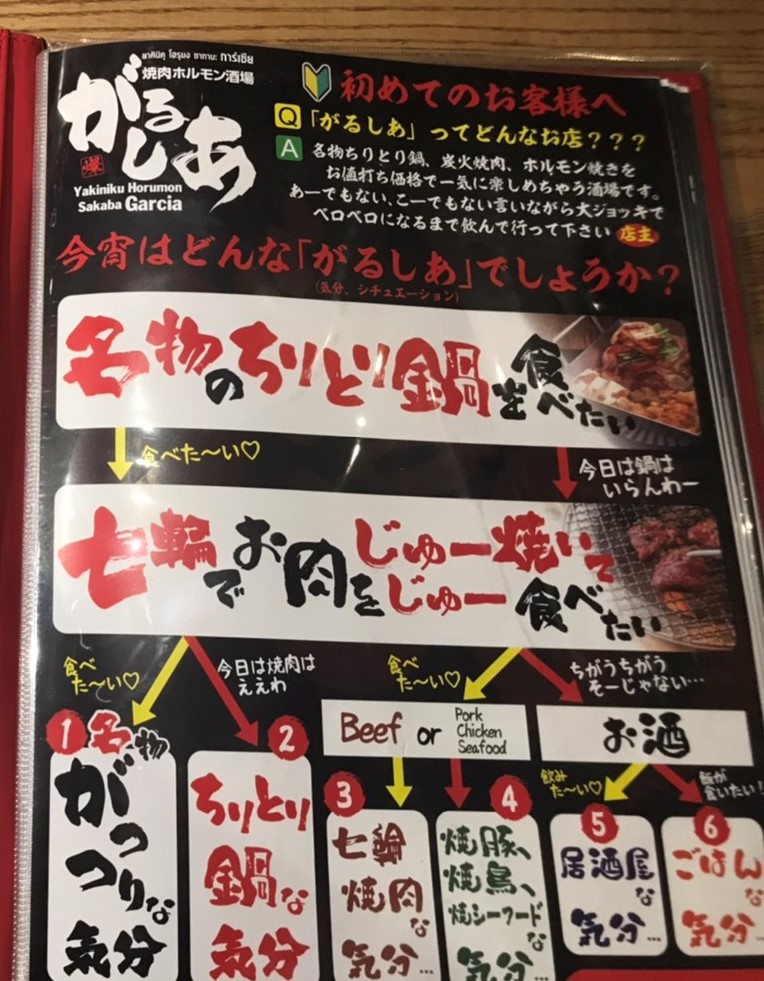 ยากินิคุ โฮรุมง ซากาบะ การ์เซีย
焼肉ホルモン酒場
がるしあ
Yakiniku Horumon
Sakaba Garcia
初めてのお客様へ
Q 「がるしあ」ってどんなお店???
A 名物ちりとり鍋、炭火焼肉、ホルモン焼きを
お値打ち価格で一気に楽しめちゃう酒場です。
あーでもない、こーでもない言いながら大ジョッキで
ベロベロになるまで飲んで行って下さい 店主
今宵はどんな「がるしあ」でしょうか?
(気分、シチュエーション)
名物のちりとり鍋を食べたい
食べた〜い♡
今日は鍋は
いらんわー
七輪でお肉をじゅー焼いて
じゅー食べたい
食べ
た〜い♡
今日は焼肉は
ええわ
食べ
た〜い♡
ちがうちがう
そーじゃない…
Beef or Pork
Chicken
Seafood
お酒
飲み
た〜い♡
飯が
食いたい!
1 名物
がっつりな
気分
2
ちりとり
鍋な
気分
3
七輪
焼肉な
気分…
4
焼豚、
焼鳥、
焼シーフードな
気分…
5
居酒屋
な
気分…
6
ごはん
な
気分…